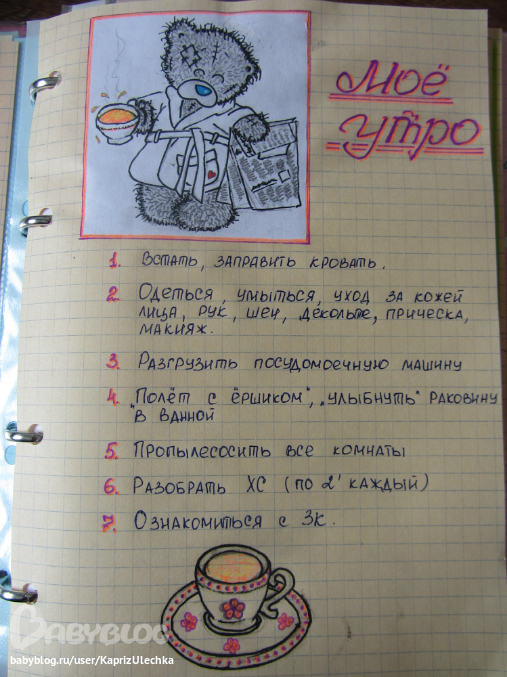 Моё
утро
1. Встать, заправить кровать.
2 Одеться, умыться, уход за кожей
лица, рук, шеи, декольте, прическа,
макияж.
3. Разгрузить посудомоечную машину
4. "Полёт с ёршиком", "улыбнуть" раковину
в ванной
5. Пропылесосить все комнаты
6. Разобрать ХС (по 2' каждый)
7. Ознакомиться с ЗК.
BABYBLOG
babyblog.ru/user/KaprizUlechka